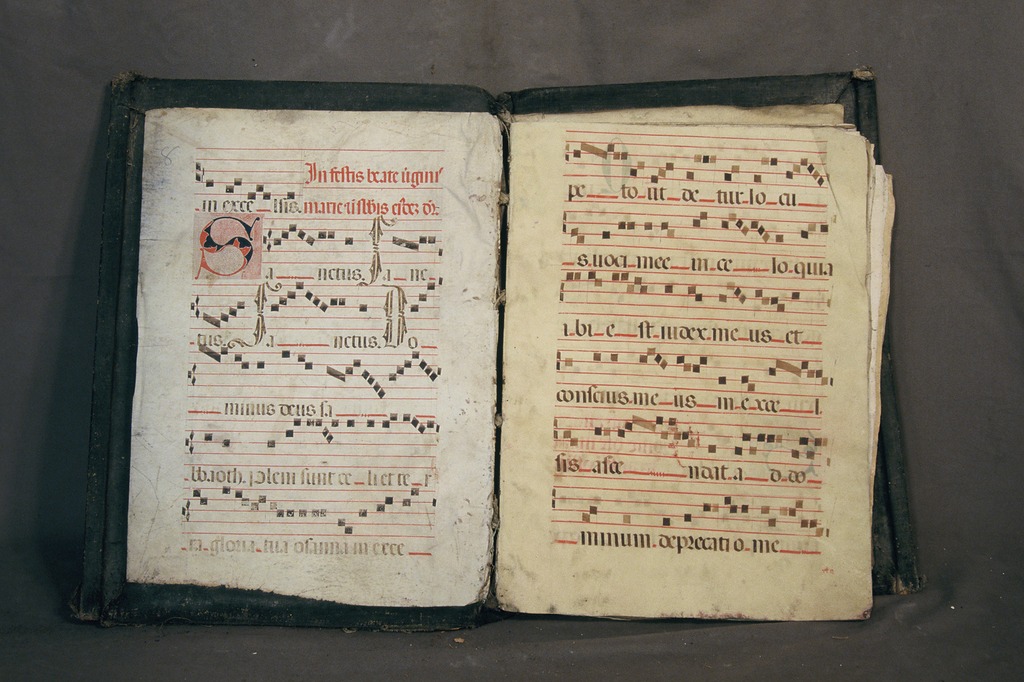 In festis beate v̄gini'
in exce lsis. marie
Sa nctus. Sa nc
tus. Sa nctus. Do
minus deus sa
baoth. pleni sunt ce li et te r
ra. gloria tua osanna in exce
pe to ut de tur lo cu
s uoci mee in ce lo quia
ibi e st iudex me us et
conscius me us in exce l
sis asce ndat a d do
minum deprecati o me